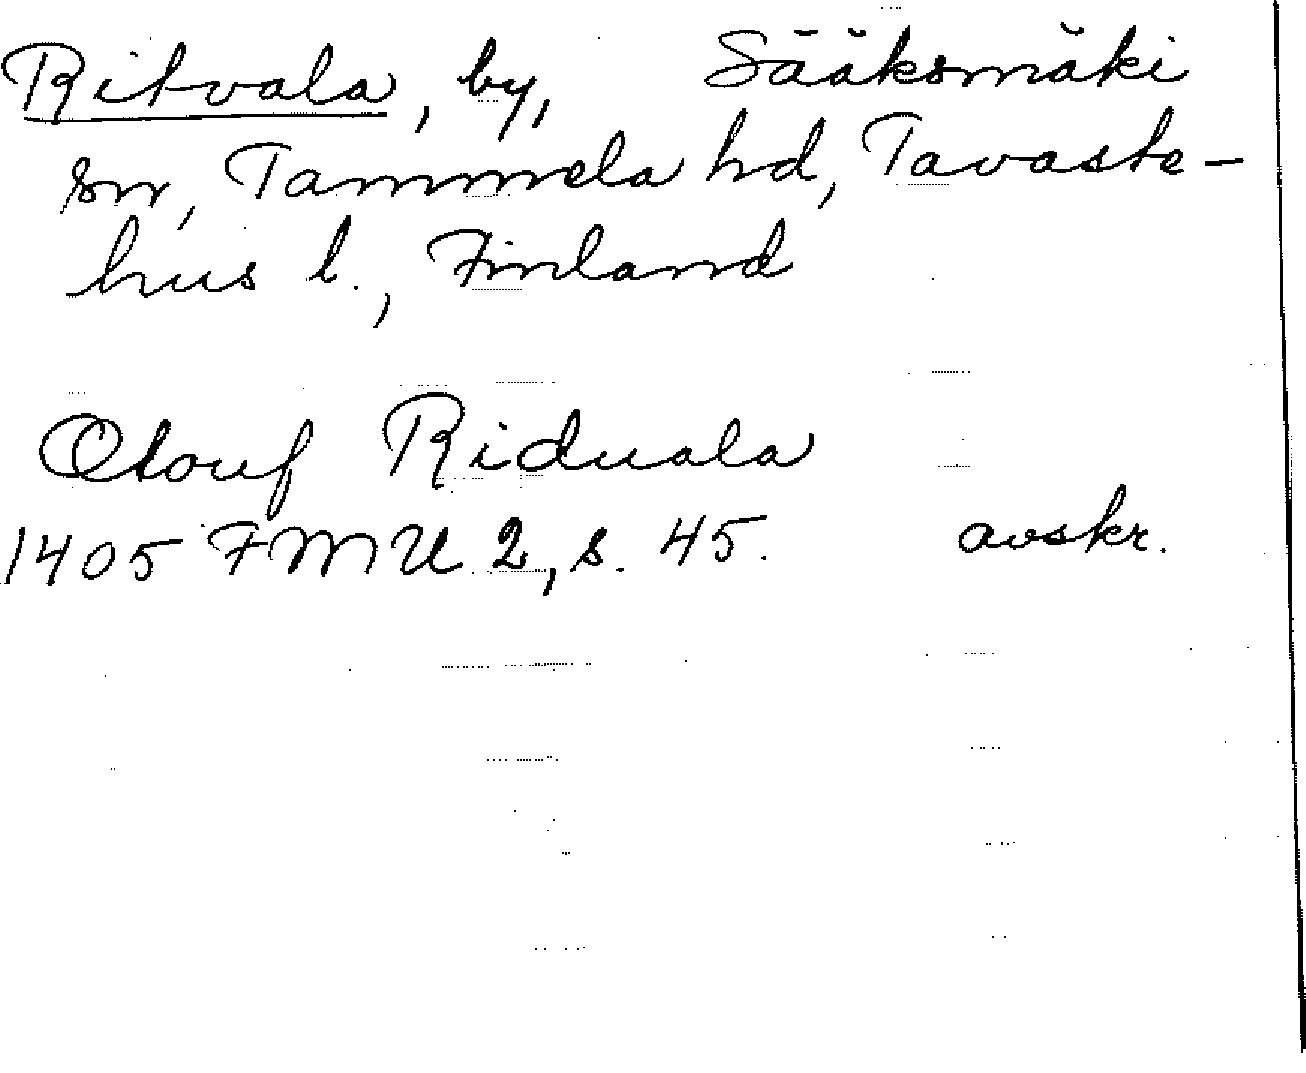 Ritvala, by, Sääksmäki
sn, Tammela hd, Tavaste-
hus l., Finland
Olouf Riduala
1405 FMU 2, s. 45. avskr.